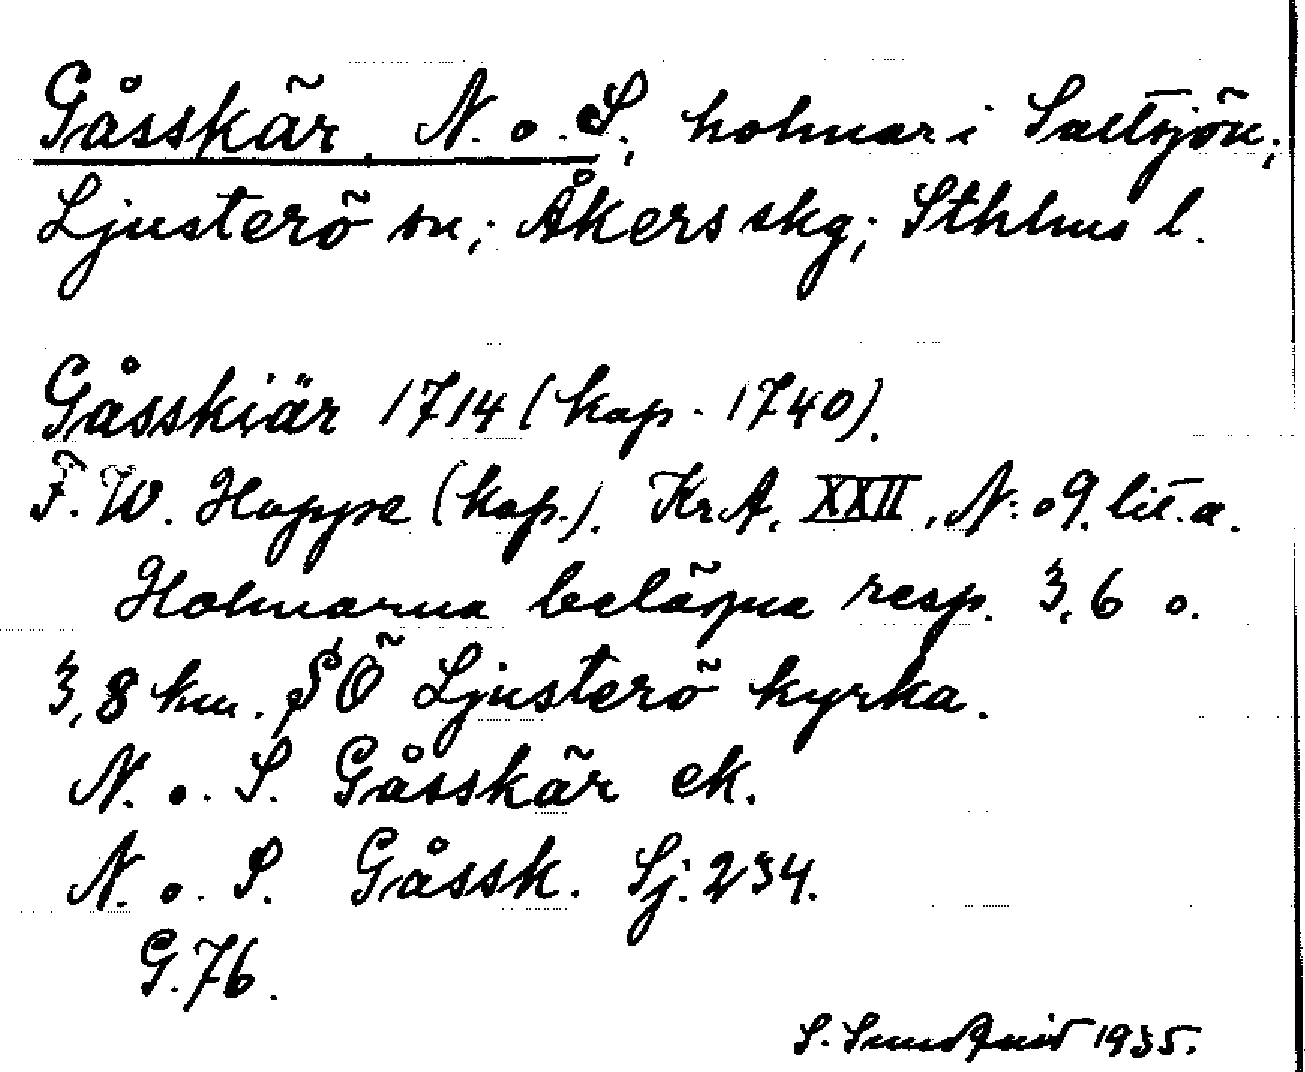 Gåsskär, N. o. S., holmar i Saltsjön;
Ljusterö sn; Åkers skg; Sthlms l.
Gåsskiär 1714 (kop. 1740).
F. W. Hoppe (kop.). KrA, XXII, N:o 9. lit. a.
Holmarna belägna resp. 3,6 o.
3,8 km. SÖ Ljusterö kyrka.
N. o. S. Gåsskär ek.
N. o. S. Gåssk. Sj. 234.
G. 76.
S. Sundqvist 1935.